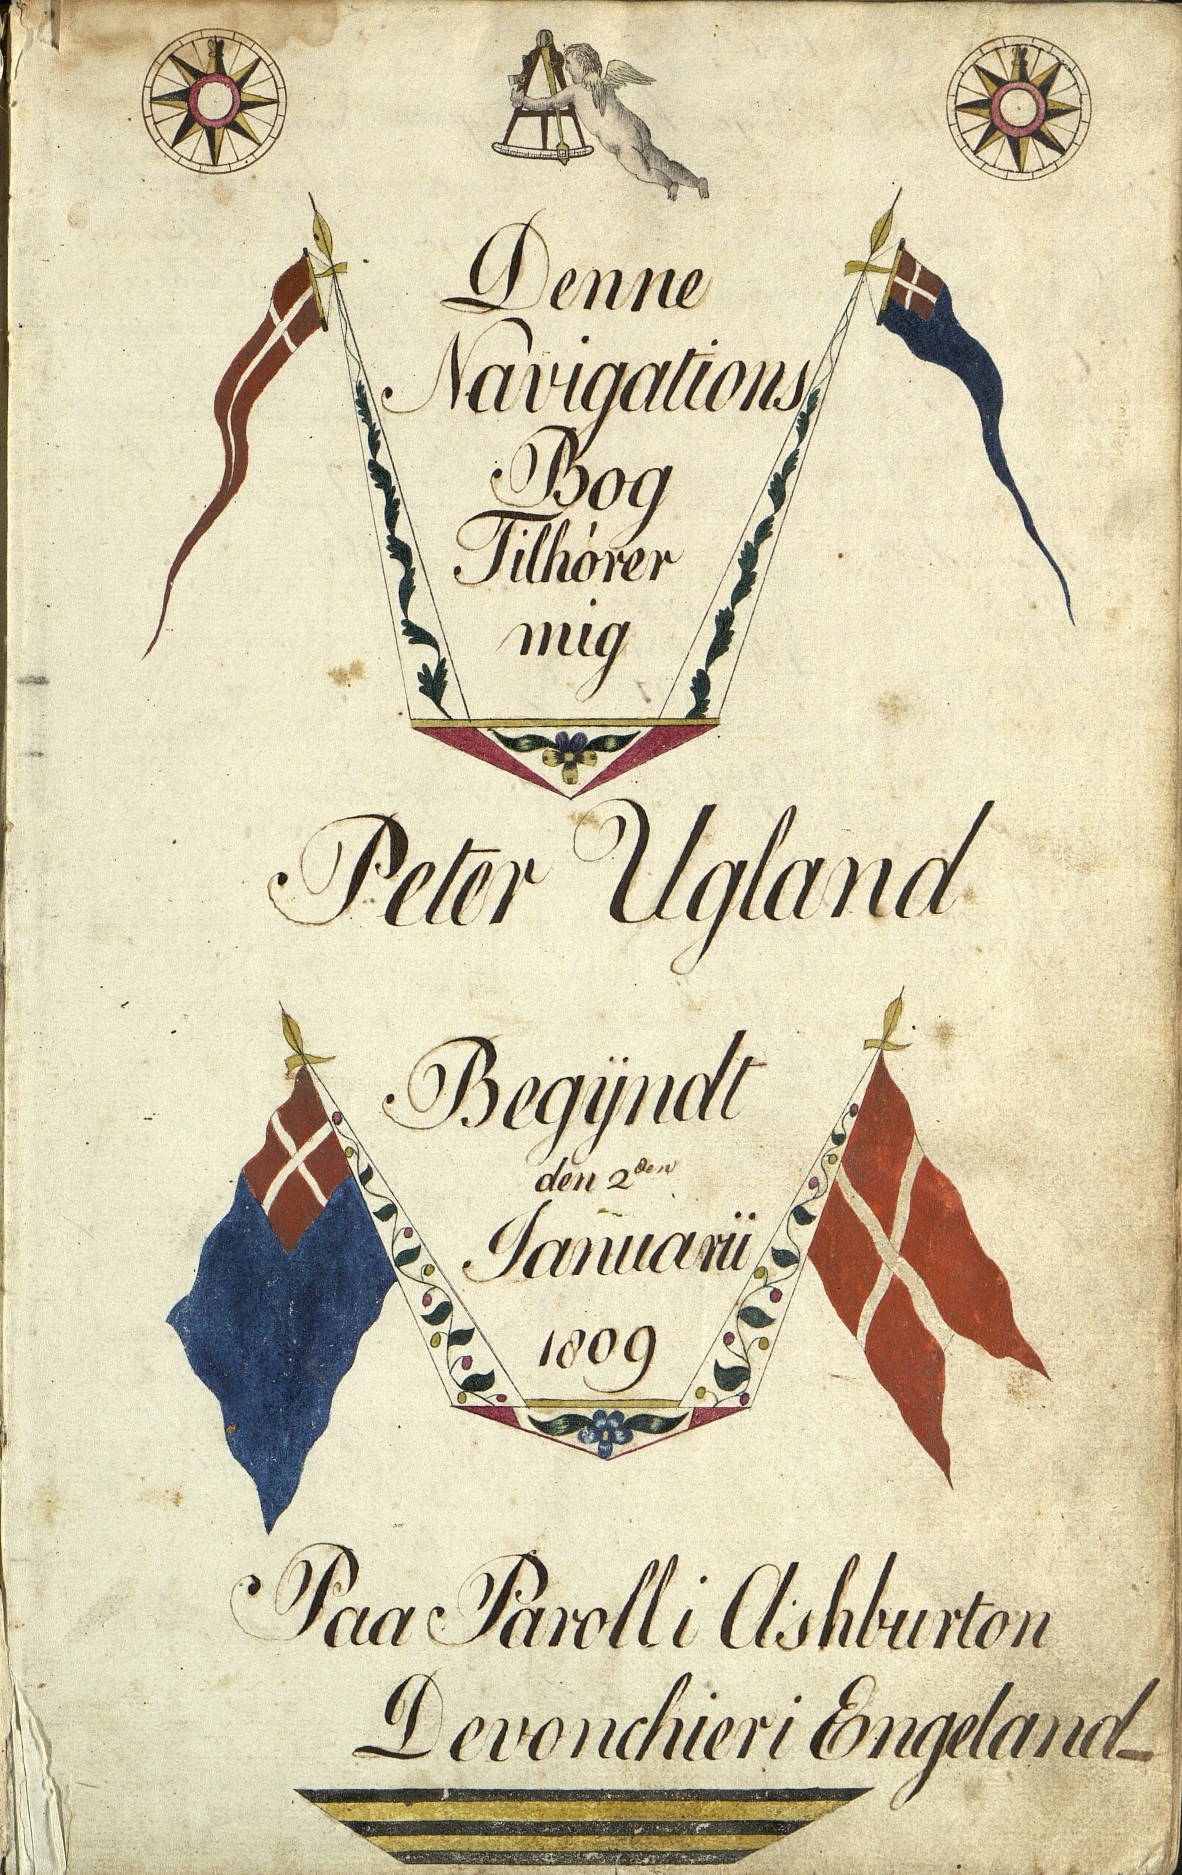 Denne
Navigations
Bog
Tilhörer
mig
Peter Ugland
Begÿndt
den 2den
Januarii
1809
Paa Paroll i Ashburton
Devonchier i Engeland